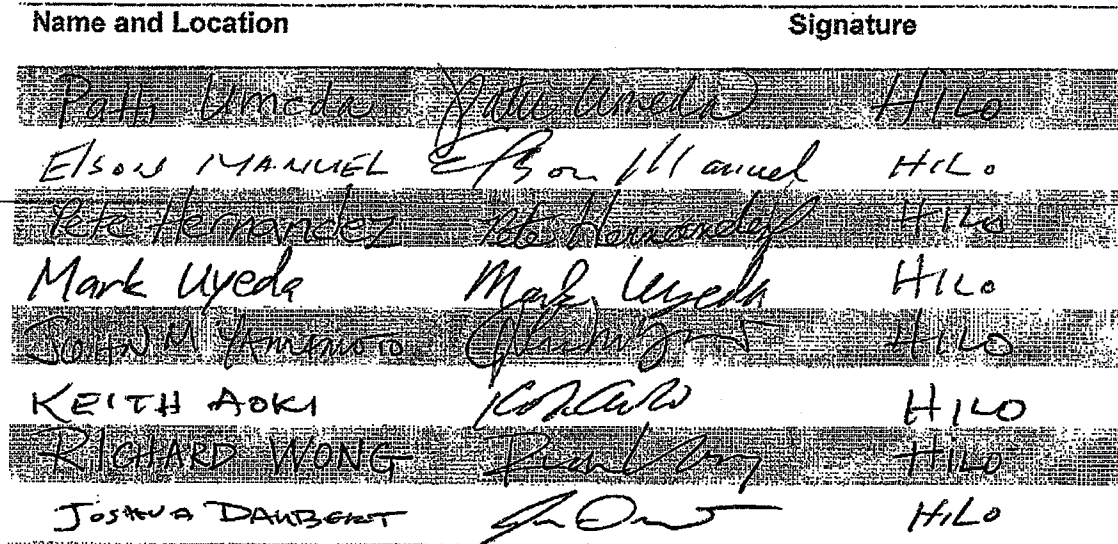 Name and Location Signature
Patti Umeda Patti Umeda HILO
Elson MANUEL Elson Manuel HILO
Pete Hernandez Pete Hernandez HILO
Mark Uyeda Mark Uyeda HILO
JOHN M YAMAMOTO HILO
KEITH AOKI HILO
RICHARD WONG HILO
JOSHUA DAUBERT HILO